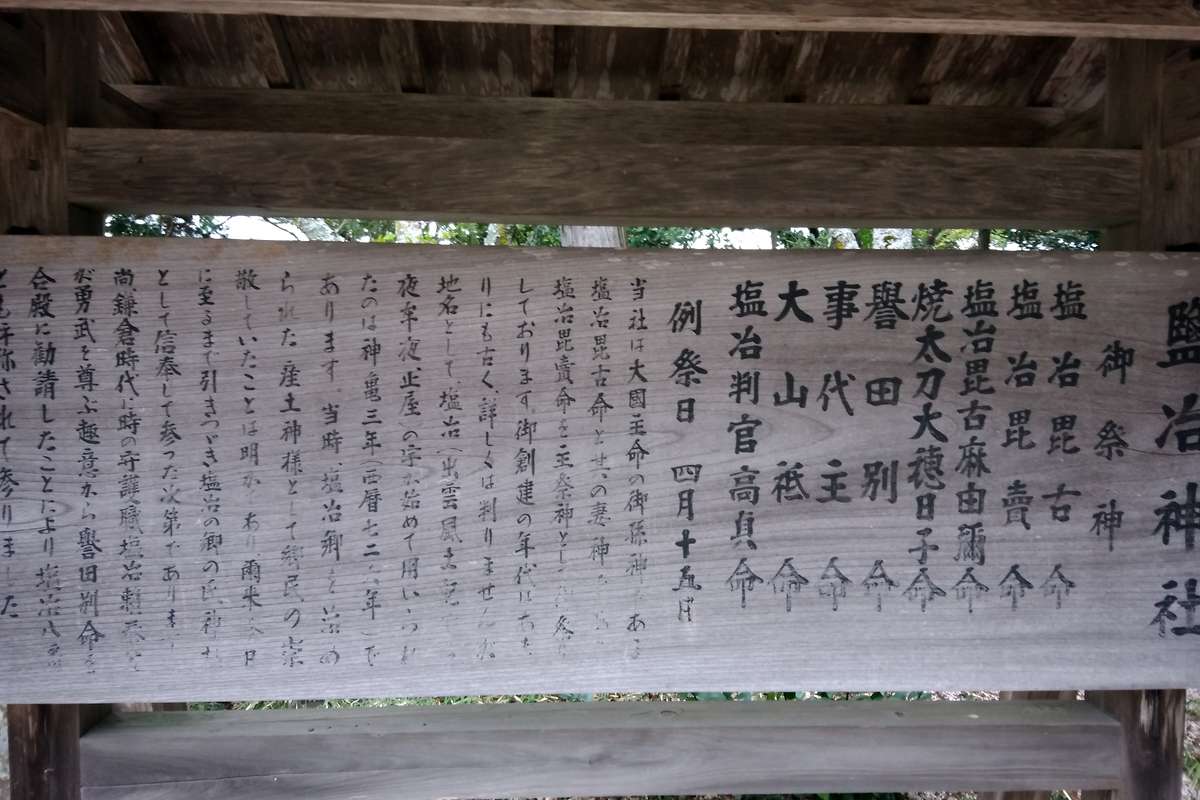 鹽冶神社
御祭神
塩冶毘古命
塩冶毘賣命
塩冶毘古麻由彌命
焼太刀大穂日子命
譽田別命
事代主命
大山祇命
塩冶判官高貞命
例祭日 四月十五日
当社は大國主命の御孫神 ある
塩冶毘古命と其の妻神
塩冶毘賣命を主祭神とし
しております。御創建の年代はあ
りにも古く、詳しくは判りませんが
地名として、塩冶(出雲風土記
夜牟夜、止屋)の字が始めて用いられ
たのは神亀三年(西暦七二六年)で
あります。当時、塩冶郷を治め
られた産土神様として郷民の崇
敬していたことは明かであり、爾来今日
に至るまで引きつづき塩冶の郷の氏神
として信奉して参った次第であります
尚鎌倉時代に時の守護職塩冶頼泰
が勇武を尊ぶ趣意から譽田別命を
合殿に勧請したことにより塩冶八
とも呼称されて参りました